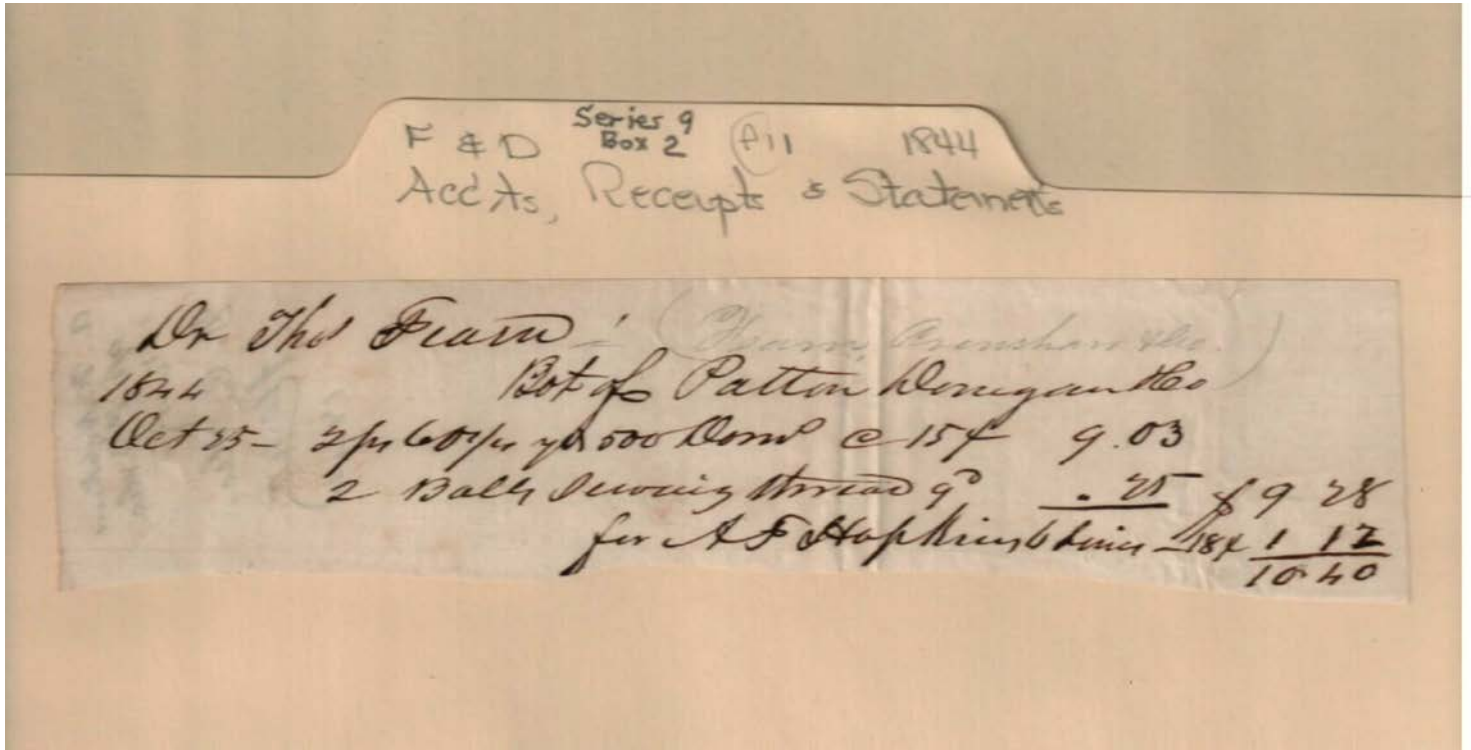 F & D Series 9 Box 2 1844
Accts, Receipts & Statements
Dr Thos Fearn (Fearn, Crenshaw & Co.)
1844 Bot of Patton Donegan & Co
Oct 25 - 500 @ 15¢ 9.03
2 Balls Sewing thread .25 $9 28
for A F Hopkins 6 1 12
10 40